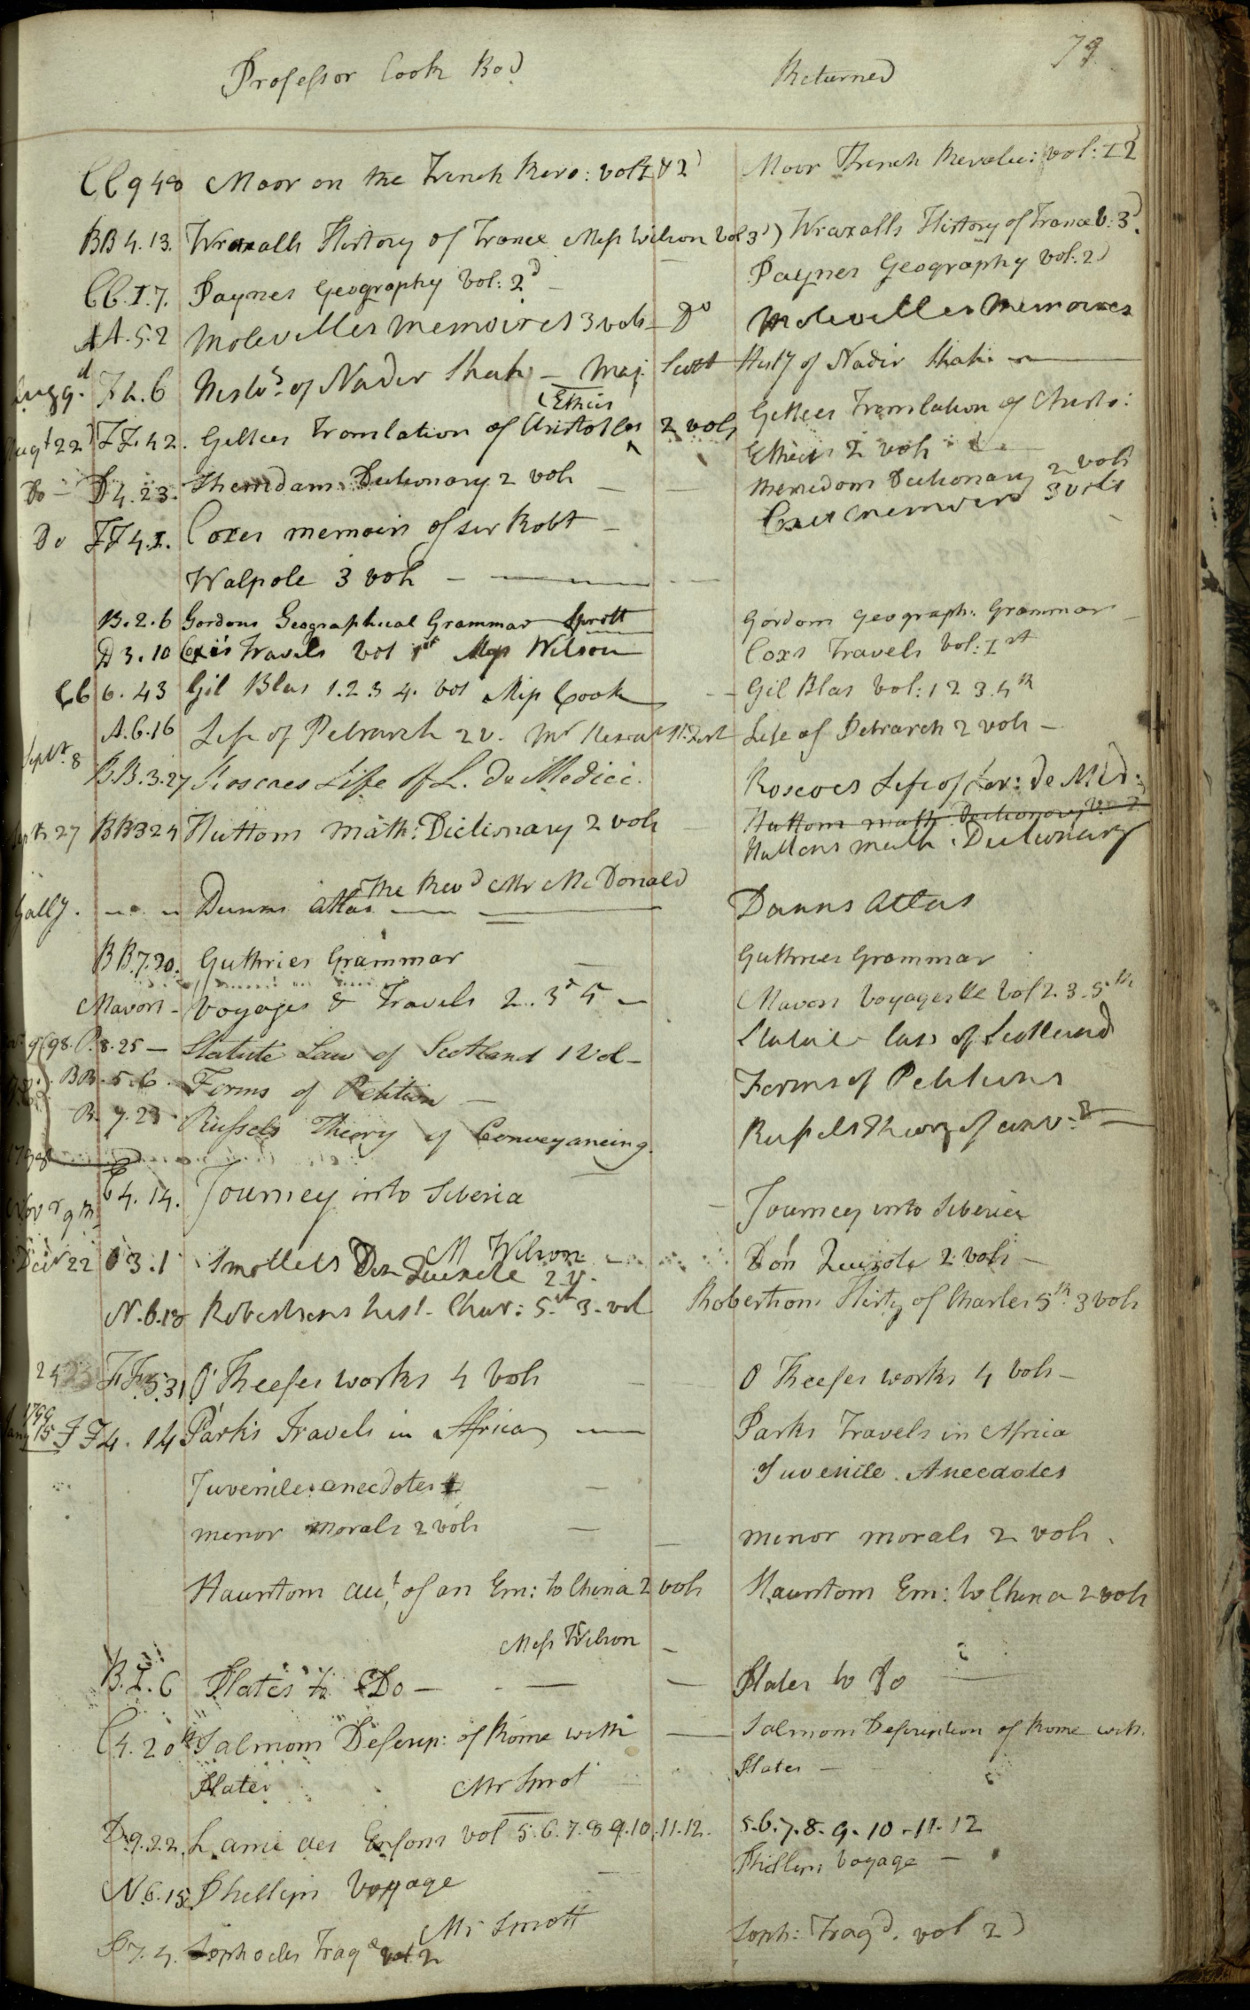 Professor Cook Rec^d Returned 79
CC 9 40 Moor on the French Revo: vol 1 & 2^d Moor French Revolu: vol: I 2^d
BB 4. 13. Wraxalls History of France Miss Wilson Vol 3^d) Wraxalls History of France V: 3^d
CC. I. 7. Paynes Geography Vol: 2^d – Paynes Geography Vol: 2^d
AA. 5. 2 Molevilles Memoires 3 vols – D^o Molevilles Memoires
Aug 9. FF. 6 Hist^y of Nader Shah – Maj: Scott Hist^y of Nadir Shah
(Ethics
Aug^t 22^d FF. 42. Gillies Translation of Aristotles ^ 2 vols Gillies Translation of Aristo:
Ethics 2 vols
Do – D 4. 23. Sheridans Dictionary 2 vols – – Sheridans Dictionary 2 vols
Do FF 4. I. Coxes memoirs of sir Robt – Coxes memoirs 3 vols
Walpole 3 vols –
B. 2. 6 Gordons Geographical Grammar Sprott Gordons Geograph: Grammar
D 3. 10 Coxe's Travels Vol 1^st Miss Wilson Coxs Travels Vol: I^st
CC 6. 43 Gil Blas 1. 2. 3 4. vol Miss Cook – Gil Blas Vol: 1 2 3. 4^th
A. 6. 16 Life of Petrarch 2 v. M^r Life of Petrarch 2 vols –
Sept^r. 8 BB. 3. 27 Roscoes Life of L. de Medici. Roscoes Life of Lor: de Med:
Sept^r 27 BB 3 24 Huttons Math: Dictionary 2 vols Huttons math Dictionary
Huttons math. Dictionary
The Rev^d Mr McDonald
Gally. Dunns Atlas Dunns Atlas
BB. 7. 30. Guthries Grammar – Guthries Grammar
Mavors – Voyages & Travels 2. 3^d 5 – Mavors Voyages &c Vol 2. 3. 5^th
98. P. 8. 25 – Statute Law of Scotland 1 Vol – Statute Law of Scotland
BB. 5. 6. Forms of Petition – Forms of Petitions
B. 7. 23 Russels Theory of Conveyancing. Russels Theory of conv:^g
1798
Nov^r 9^th C 4. 14. Journey into Siberia – Journey into Siberia
M Wilson
Dec^r 22 O 3. 1 Smolletts Don Quixote 2 V. Don Quixote 2 vols –
N. 6. 18 Robertsons hist. Char: 5^th 3 vol Robertsons Hist^y of Charles 5^th 3 vols
24 FF. 5 31 O'Keefes works 4 Vols – O Keefes works 4 Vols –
1799
Jany 15 FF 4. 14 Parks Travels in Africa – Parks Travels in Africa
Juvenile anecdotes – Juvenile Anecdotes
minor morals 2 vols – minor morals 2 vols.
Stauntons acc^t of an Em: to China 2 vols Stauntons Em: to China 2 vols
Miss Wilson –
B. I. 6 Plates to Do – – – Plates to Do
C 4. 20 Salmons Descrip: of Rome with – Salmons Description of Rome with
Plates Mr Sprot Plates –
D. 9. 22. L'ami des Enfans Vol 5. 6. 7. 8 9. 10. 11. 12. 5. 6. 7. 8. 9. 10. 11. 12
N. 6. 15. Phillips Voyage – Phillips Voyage –
Mr Sprott
P 7. 4. Sophocles Trag^d vol. 2 Soph: Trag^d. vol 2^d